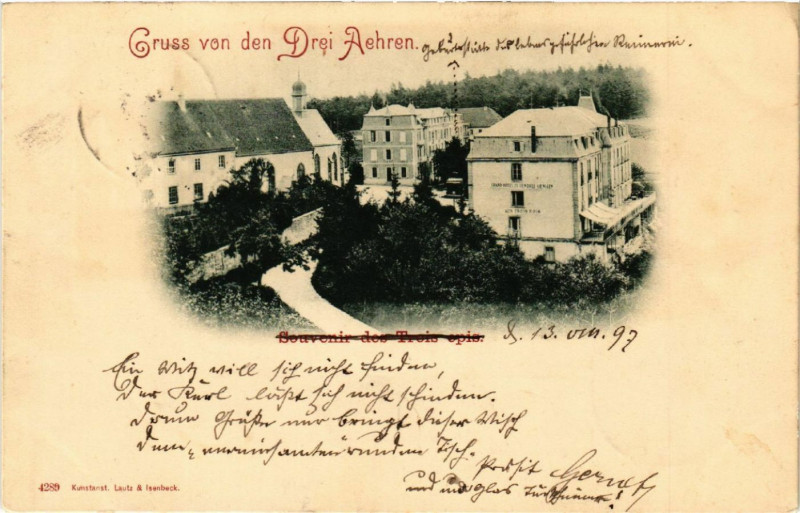 Gruss von den Drei Aehren.
Geburtsstätte des lebensgefährlichen
Souvenir des Trois epis. d. 13. VIII. 97
Ein Witz will sich nicht finden,
Der Kerl läßt sich nicht schinden.
Drum Grüße nur bringt dieser Wisch
Dem „vereinsamten runden Tisch.
Prosit
und
4289 Kunstanst. Lautz & Isenbeck.